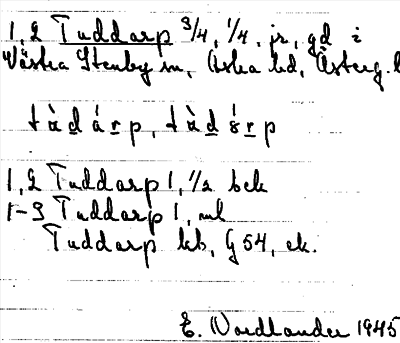 1, 2 Tuddarp 3/4, 1/4, jr, gd i
Västra Stenby sn, Aska hd, Österg. l
tàdárp, tàdórp
1, 2 Tuddarp 1, 1/2 bek
1-3 Tuddarp 1, ml
Tuddarp kb, G 54, ek.
E. Nordlander 1945